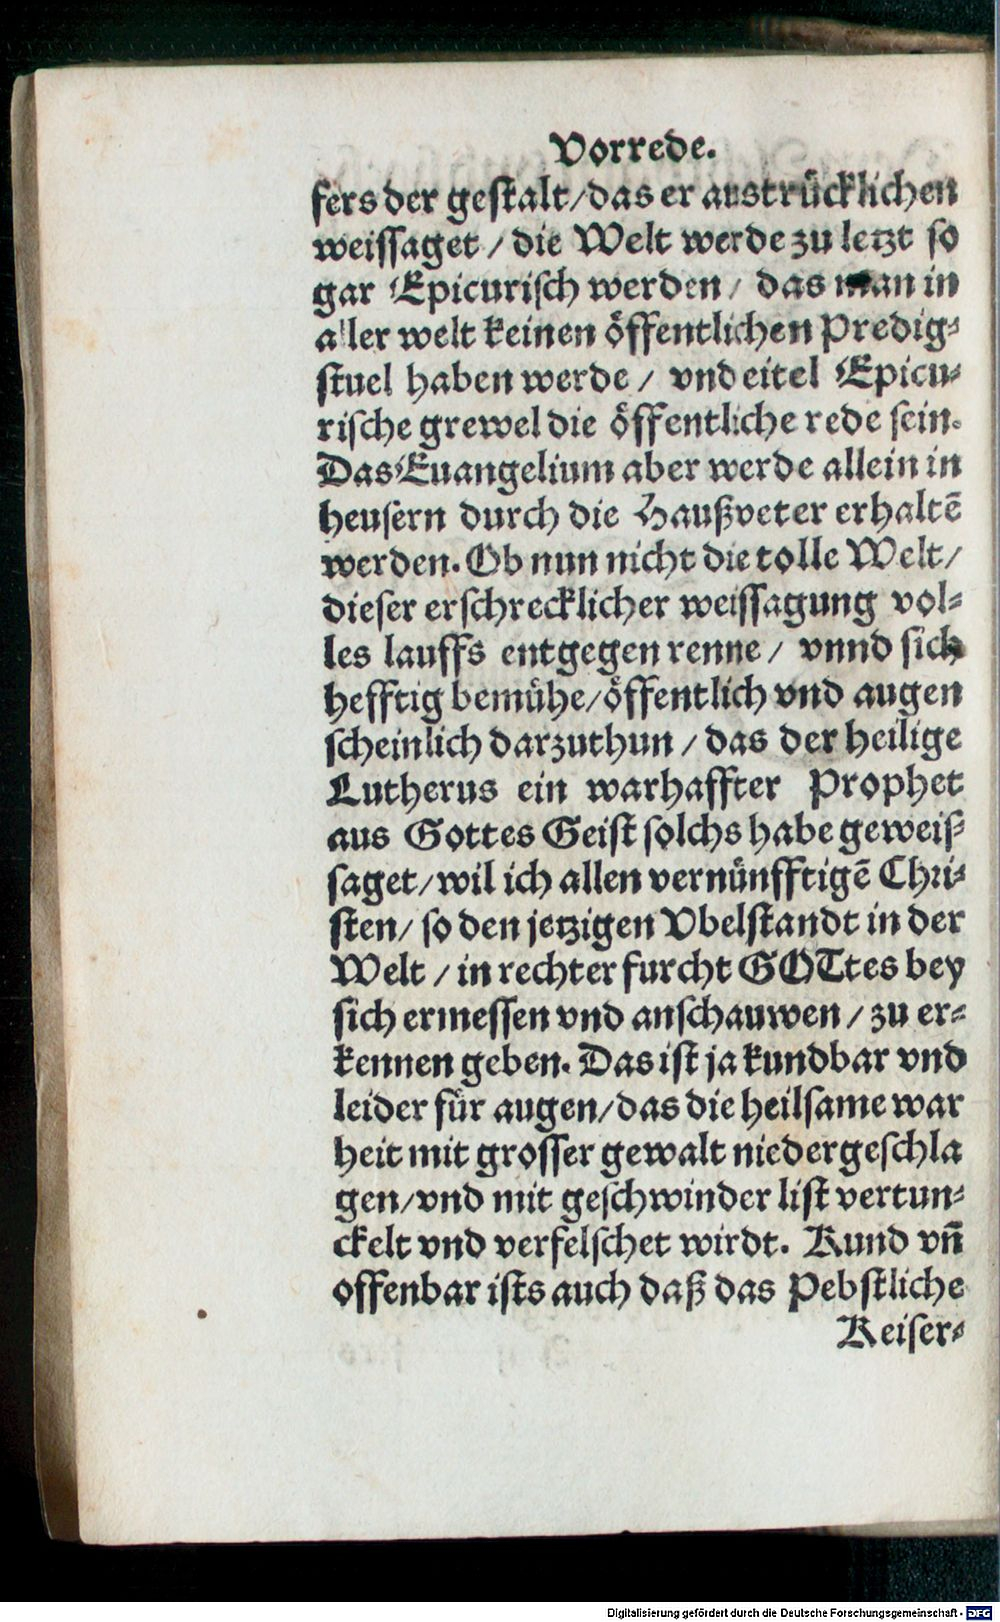 Vorrede.
fers der gestalt/das er austrücklichen
weissaget / die Welt werde zu letzt so
gar Epicurisch werden / das man in
aller welt keinen öffentlichen Predig-
stuel haben werde / vnd eitel Epicu-
rische grewel die öffentliche rede sein.
Das Euangelium aber werde allein in
heusern durch die Haußveter erhaltē
werden. Ob nun nicht die tolle Welt/
dieser erschrecklicher weissagung vol-
les lauffs entgegen renne / vnnd sich
hefftig bemühe/öffentlich vnd augen
scheinlich darzuthun / das der heilige
Lutherus ein warhaffter Prophet
aus Gottes Geist solchs habe geweis-
saget/wil ich allen vernünfftigē Chri-
sten/ so den jetzigen Vbelstandt in der
Welt / in rechter furcht GOTtes bey
sich ermessen vnd anschauwen / zu er-
kennen geben. Das ist ja kundbar vnd
leider für augen/das die heilsame war
heit mit grosser gewalt niedergeschla
gen/vnd mit geschwinder list vertun-
ckelt vnd verfelschet wirdt. Kund vn̄
offenbar ists auch daß das Pebstliche
Keiser-
Digitalisierung gefördert durch die Deutsche Forschungsgemeinschaft - DFG